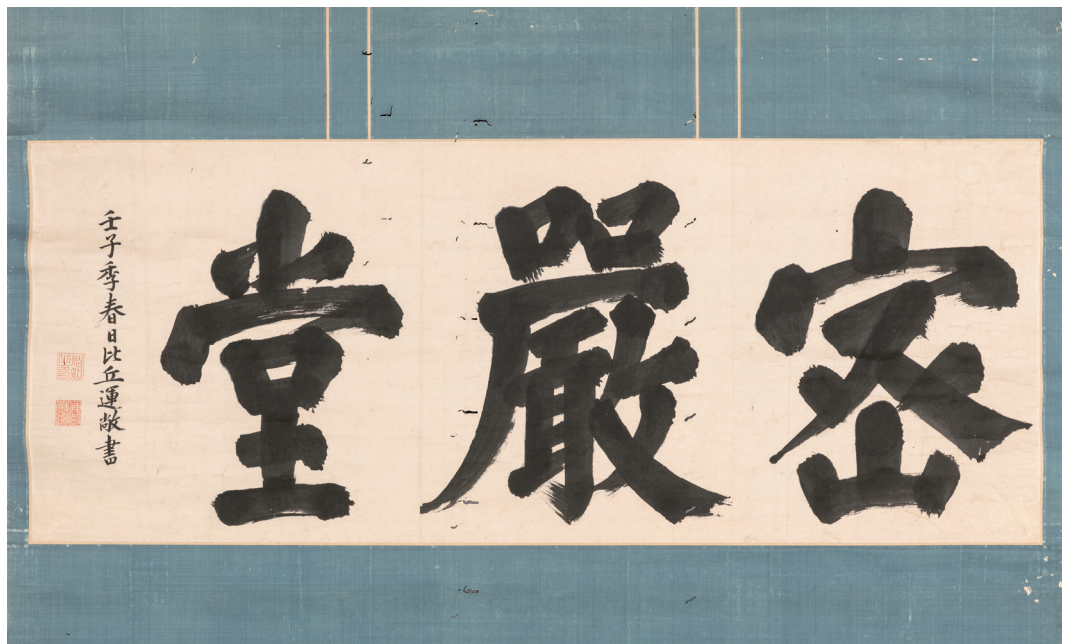 密嚴堂
壬子季春日比丘運敞書